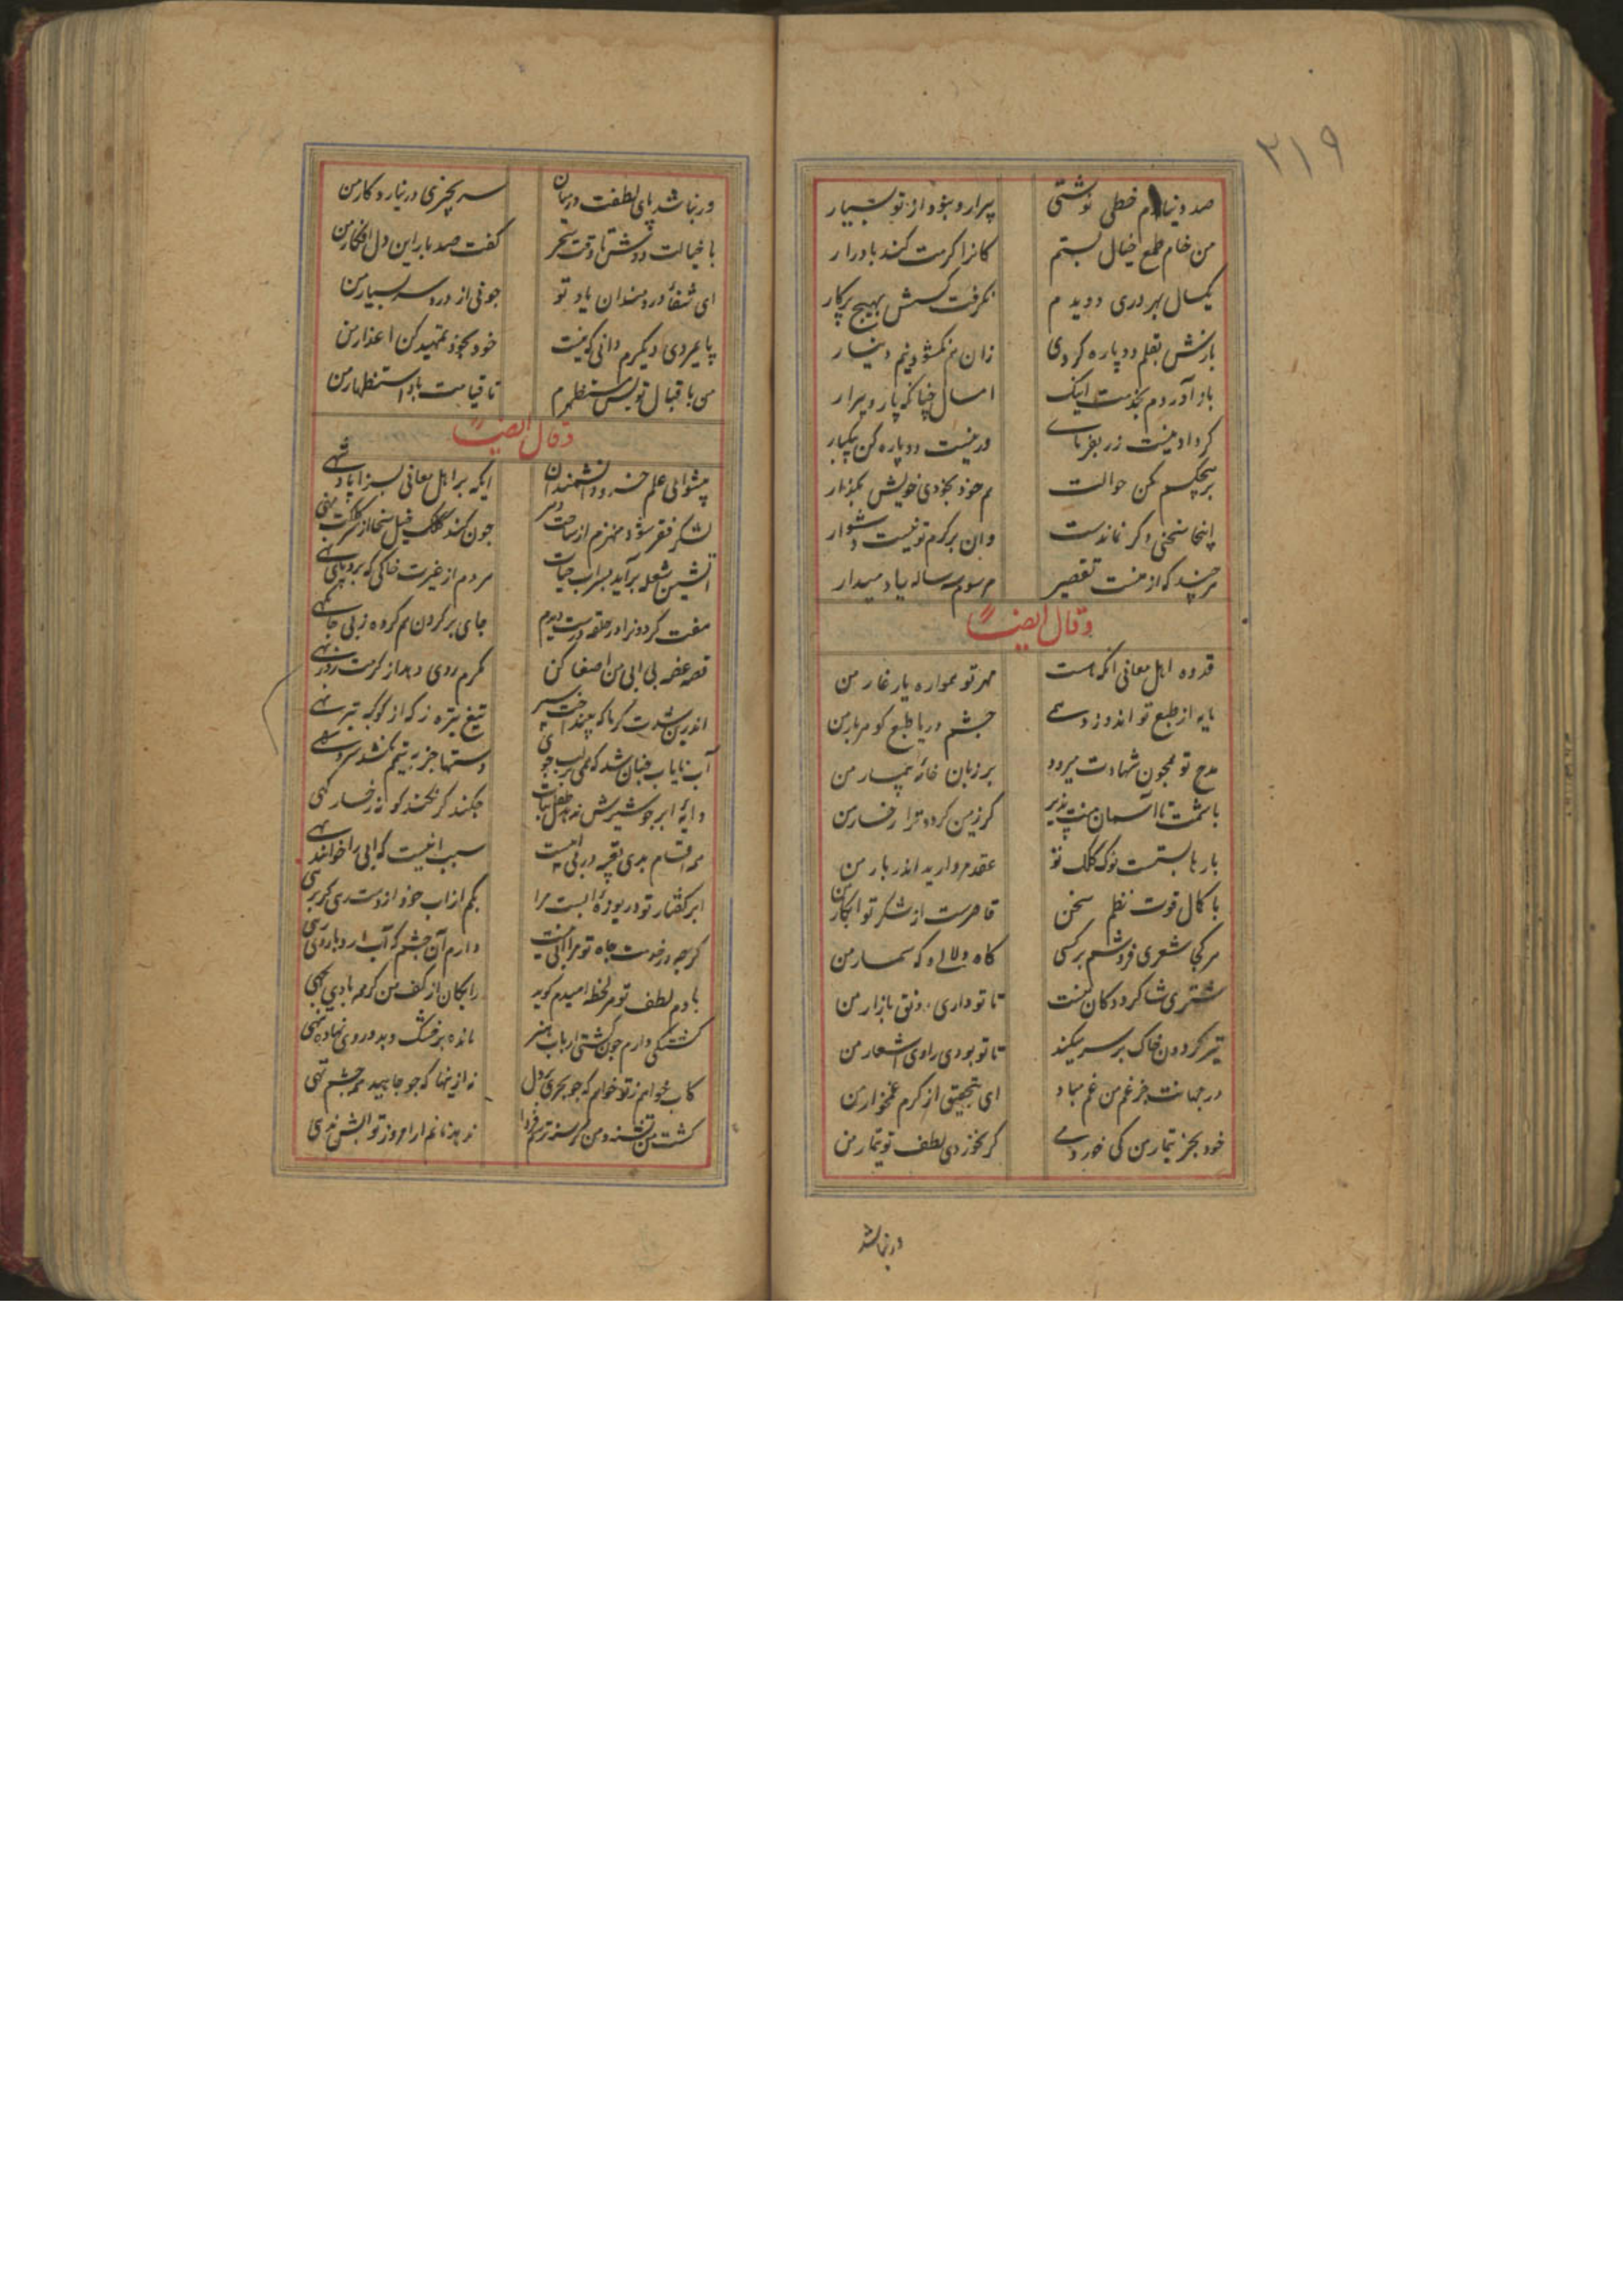 ۳۱۹
صد دینارم خطی نوشتی پیرار و بنود از تو بسیار
من خام طمع خیال بستم کانرا کرمت کند بادرار
یکسال بهر دری دویدم نکرفت کسش بهیچ برکار
بازش بقلم دوباره کردی زان هم نکشود نیم دینار
باز آوردم بخدمت اینک امسال چنانکه پار و پیرار
کر داد نیست زر بفرمای ور نیست دوباره کن بیکبار
بر هیچکسم مکن حوالت هم خود بخودی خویش بگذار
اینجا سخنی دکر نماندست وان بر کرم تو نیست دشوار
هر چند که از منست تقصیر مرسوم سه ساله یاد میدار
وقال ایضاً
قدوه اهل معانی انکه هست مهر تو همواره یار غار من
مایه از طبع تو اندوزد همی چشم دریا طبع کوهر بار من
مدح تو همچون شهادت میرود بر زبان خامه بیمار من
باشمت تا آسمان منت پذیر کر زمین کردد ترا رخسار من
بارها بستست نوک کلک تو عقد مروارید اندر بار من
با کمال قوت نظم سخن قاصرست از شکر تو ابکار من
هر کجا شعری فروشم بر کسی کاه دلالی و که سمسار من
مشتری شاکرد دکان منست تا تو داری رونق بازار من
تیر کردون خاک بر سر میکند تا تو بودی راوی اشعار من
در جهانت جز غم من غم مباد ای بتحقیق از کرم غمخوار من
خود بجز تیمار من کی خوردمی کر نخوردی لطف تو تیمار من
ور نباشد
ور نباشد پای لطفت در میان سر بچیزی در نیارد کار من
با خیالت دوش تا وقت سحر کفت صد بار این دل افکار من
ای شفاء دردمندان یاد تو چونی از درد سر بسیار من
پایمردی دیکرم دانی که نیست خود بخود تمهید کن اعذار من
من باقبال تو بس مستظهرم تا قیامت باد استظهار من
وقال ایضاً
پیشوای علم خسرو دانشمندان ایکه بر اهل معانی بسزا پادشهی
لشکر فقر شود منهزم از ساحت دهر چون کند کلک خیل سخا از سر کلکت
آتشین شعله برآید بسراب حیات هر دم از غیرت خاکی که برو پای نهی
هفت کردون را در حلقه درست دیدم جای بر کردن هم کرده ز بی جایکهی
قصه غصه بی آبی من اصغا کن کرم روی دهد از کرمت روز بهی
اندرین شدت کرما که تیغ تیزه ز که از کوکبه تیر
آب نایاب چنان شد که همی بر لب جوی دستها جز به تیمم نکشد سرو سهی
دایه ابر جو شیرش ندهد طفل نبات چکند کر نکند کونه رخسار کهی
همه اقسام بدی تعبیه در بی آبیست سبب اینست که آبی را خوانند بهی
ابر کفتار تو دریوزه آبست مرا بکم از آب خود از دست
کرچه در خدمت جاه تو مرا آبی نیست دارم آن چشم که آب
با دم لطف تو هر لحظه امیدم کوید رایکان از کف من کرچه بادی بجهی
کشتکی دارم چون کشتی ارباب هنر مانده بر خشک و بدو روی نهاده تهی
کآب خواهم ز تو خواهم که چو بحری بر دل نه ازینها که چو جامید همه چشم تهی
کشت من تشنه و من کرسنه ترسم فردا ندهد نانم ار امروز تو آبش ندهی